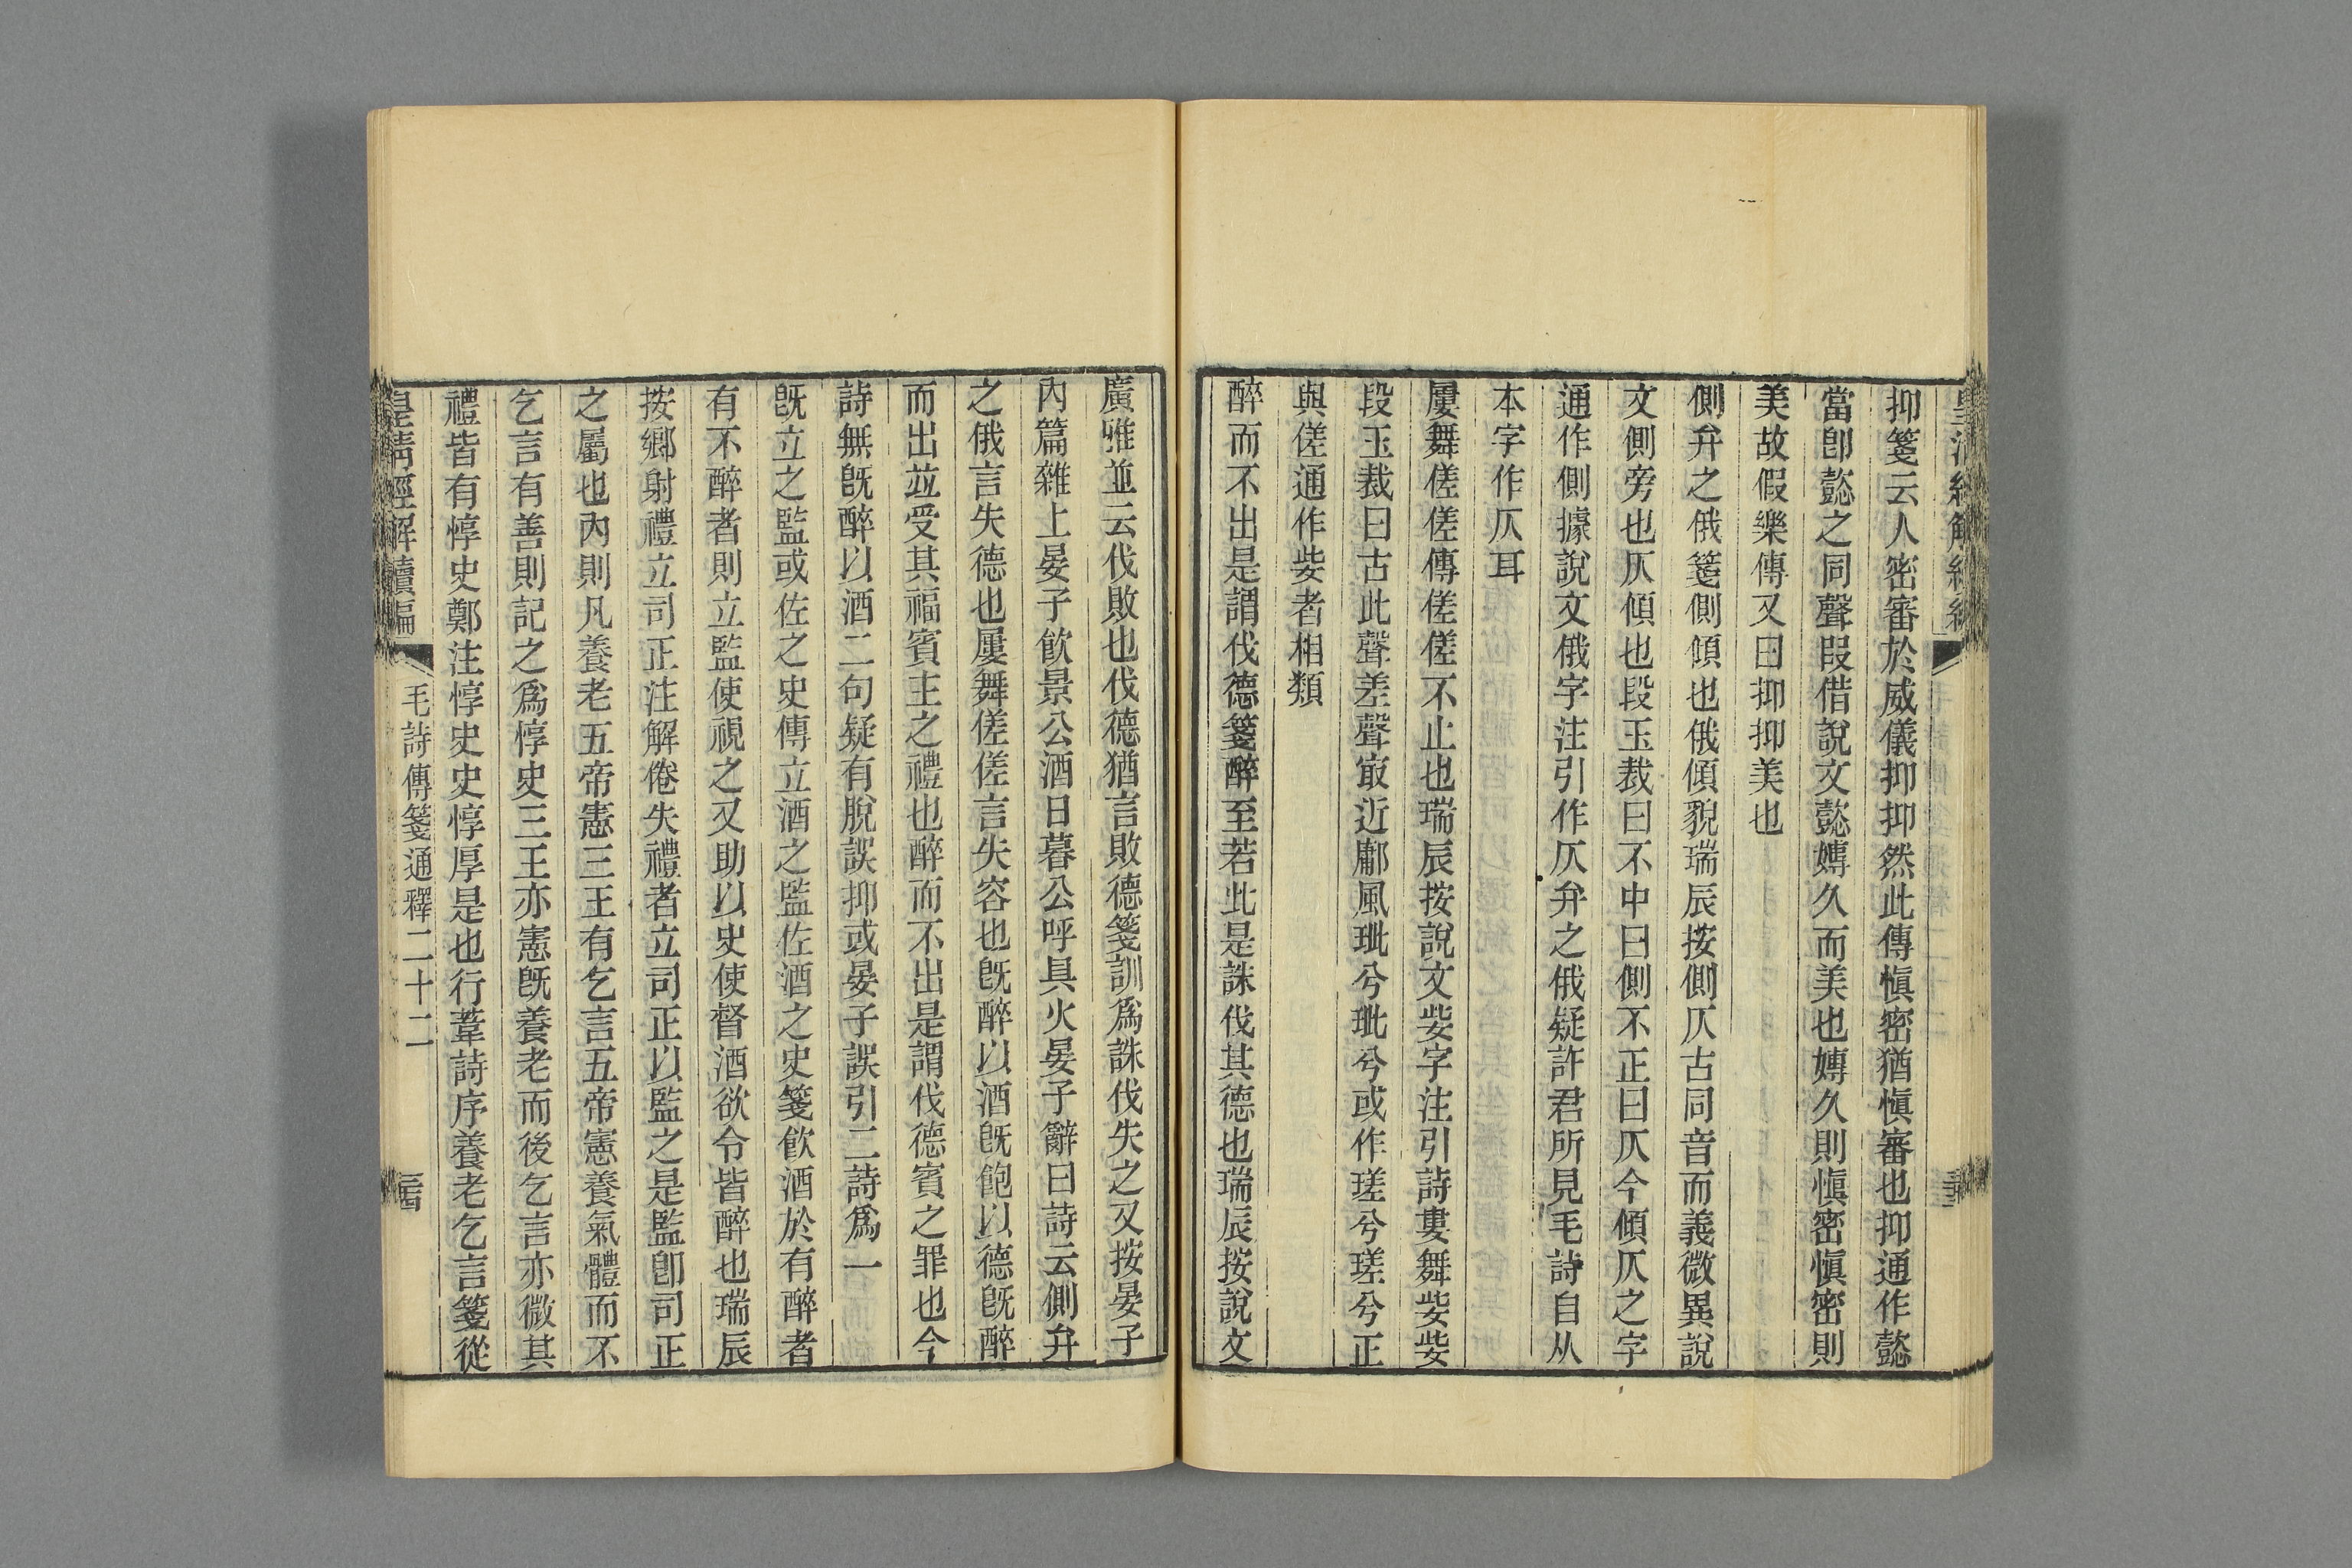 抑箋云人密審於威儀抑抑然此傳愼密猶愼審也抑通作懿
當卽懿之同聲叚借說文懿嫥久而美也嫥久則愼密愼密則
美故假樂傳又曰抑抑美也
側弁之俄箋側傾也俄傾貌瑞辰按側仄古同音而義微異說
文側旁也仄傾也段玉裁曰不中曰側不正曰仄今傾仄之字
通作側據說文俄字注引作仄弁之俄疑許君所見毛詩自从
本字作仄耳
屢舞傞傞傳傞傞不止也瑞辰按說文姕字注引詩婁舞姕姕
段玉裁曰古此聲差聲㝡近鄘風玼兮玼兮或作瑳兮瑳兮正
與傞通作姕者相類
醉而不出是謂伐德箋醉至若此是誅伐其德也瑞辰按說文
廣雅並云伐敗也伐德猶言敗德箋訓爲誅伐失之又按晏子
內篇雜上晏子飮景公酒日暮公呼具火晏子辭曰詩云側弁
之俄言失德也屢舞傞傞言失容也旣醉以酒旣飽以德旣醉
而出竝受其福賓主之禮也醉而不出是謂伐德賓之罪也今
詩無旣醉以酒二句疑有脫誤抑或晏子誤引二詩爲一
旣立之監或佐之史傳立酒之監佐酒之史箋飮酒於有醉者
有不醉者則立監使視之又助以史使督酒欲令皆醉也瑞辰
按鄉射禮立司正注解倦失禮者立司正以監之是監卽司正
之屬也內則凡養老五帝憲三王有乞言五帝憲養氣體而不
乞言有善則記之爲惇史三王亦憲旣養老而後乞言亦微其
禮皆有惇史鄭注惇史史惇厚是也行葦詩序養老乞言箋從
皇淸經解續編 毛詩傳箋通釋二十二